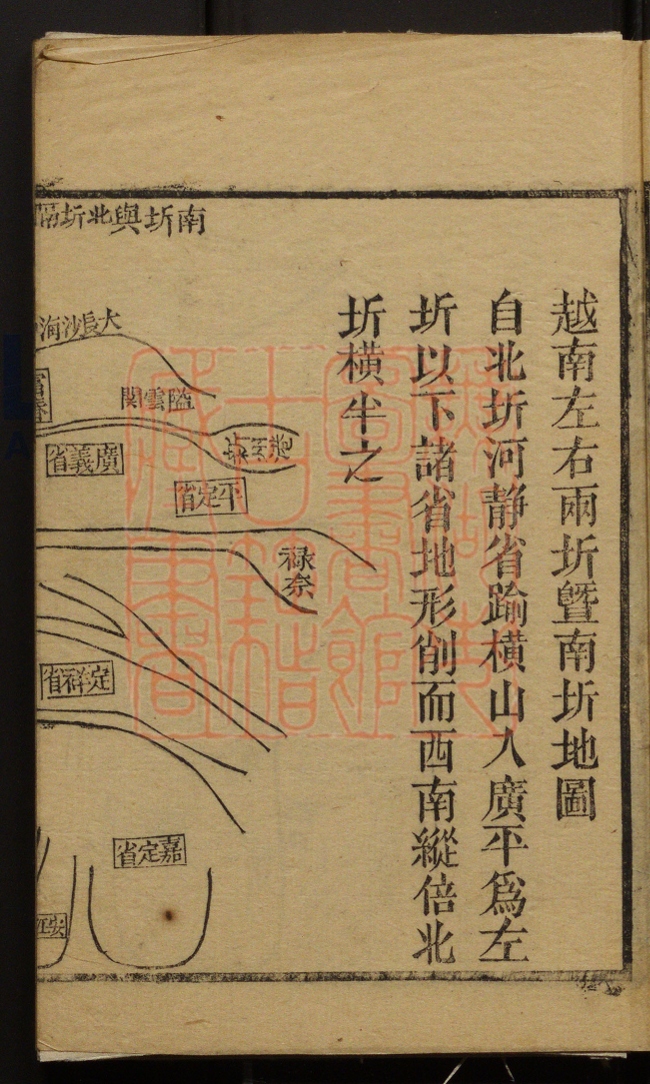 越南左右兩圻曁南圻地圖
自北圻河靜省踰橫山入廣平爲左
圻以下諸省地形削而西南縱倍北
圻橫半之
南圻與北圻隔
大長沙海
隘雲関
廣義省
平定省
祿奈
定祥省
嘉定省